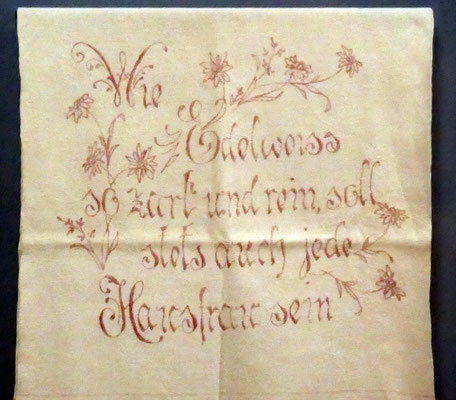 Wie
Edelweiss
so zart und rein, soll
stets auch jede
Hausfrau sein